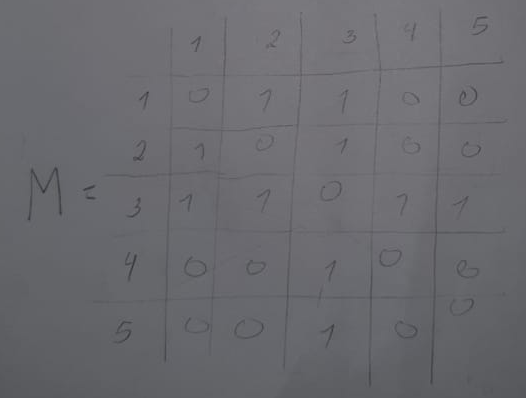 1 2 3 4 5
1 0 1 1 0 0
2 1 0 1 0 0
M = 3 1 1 0 1 1
4 0 0 1 0 0
5 0 0 1 0 0